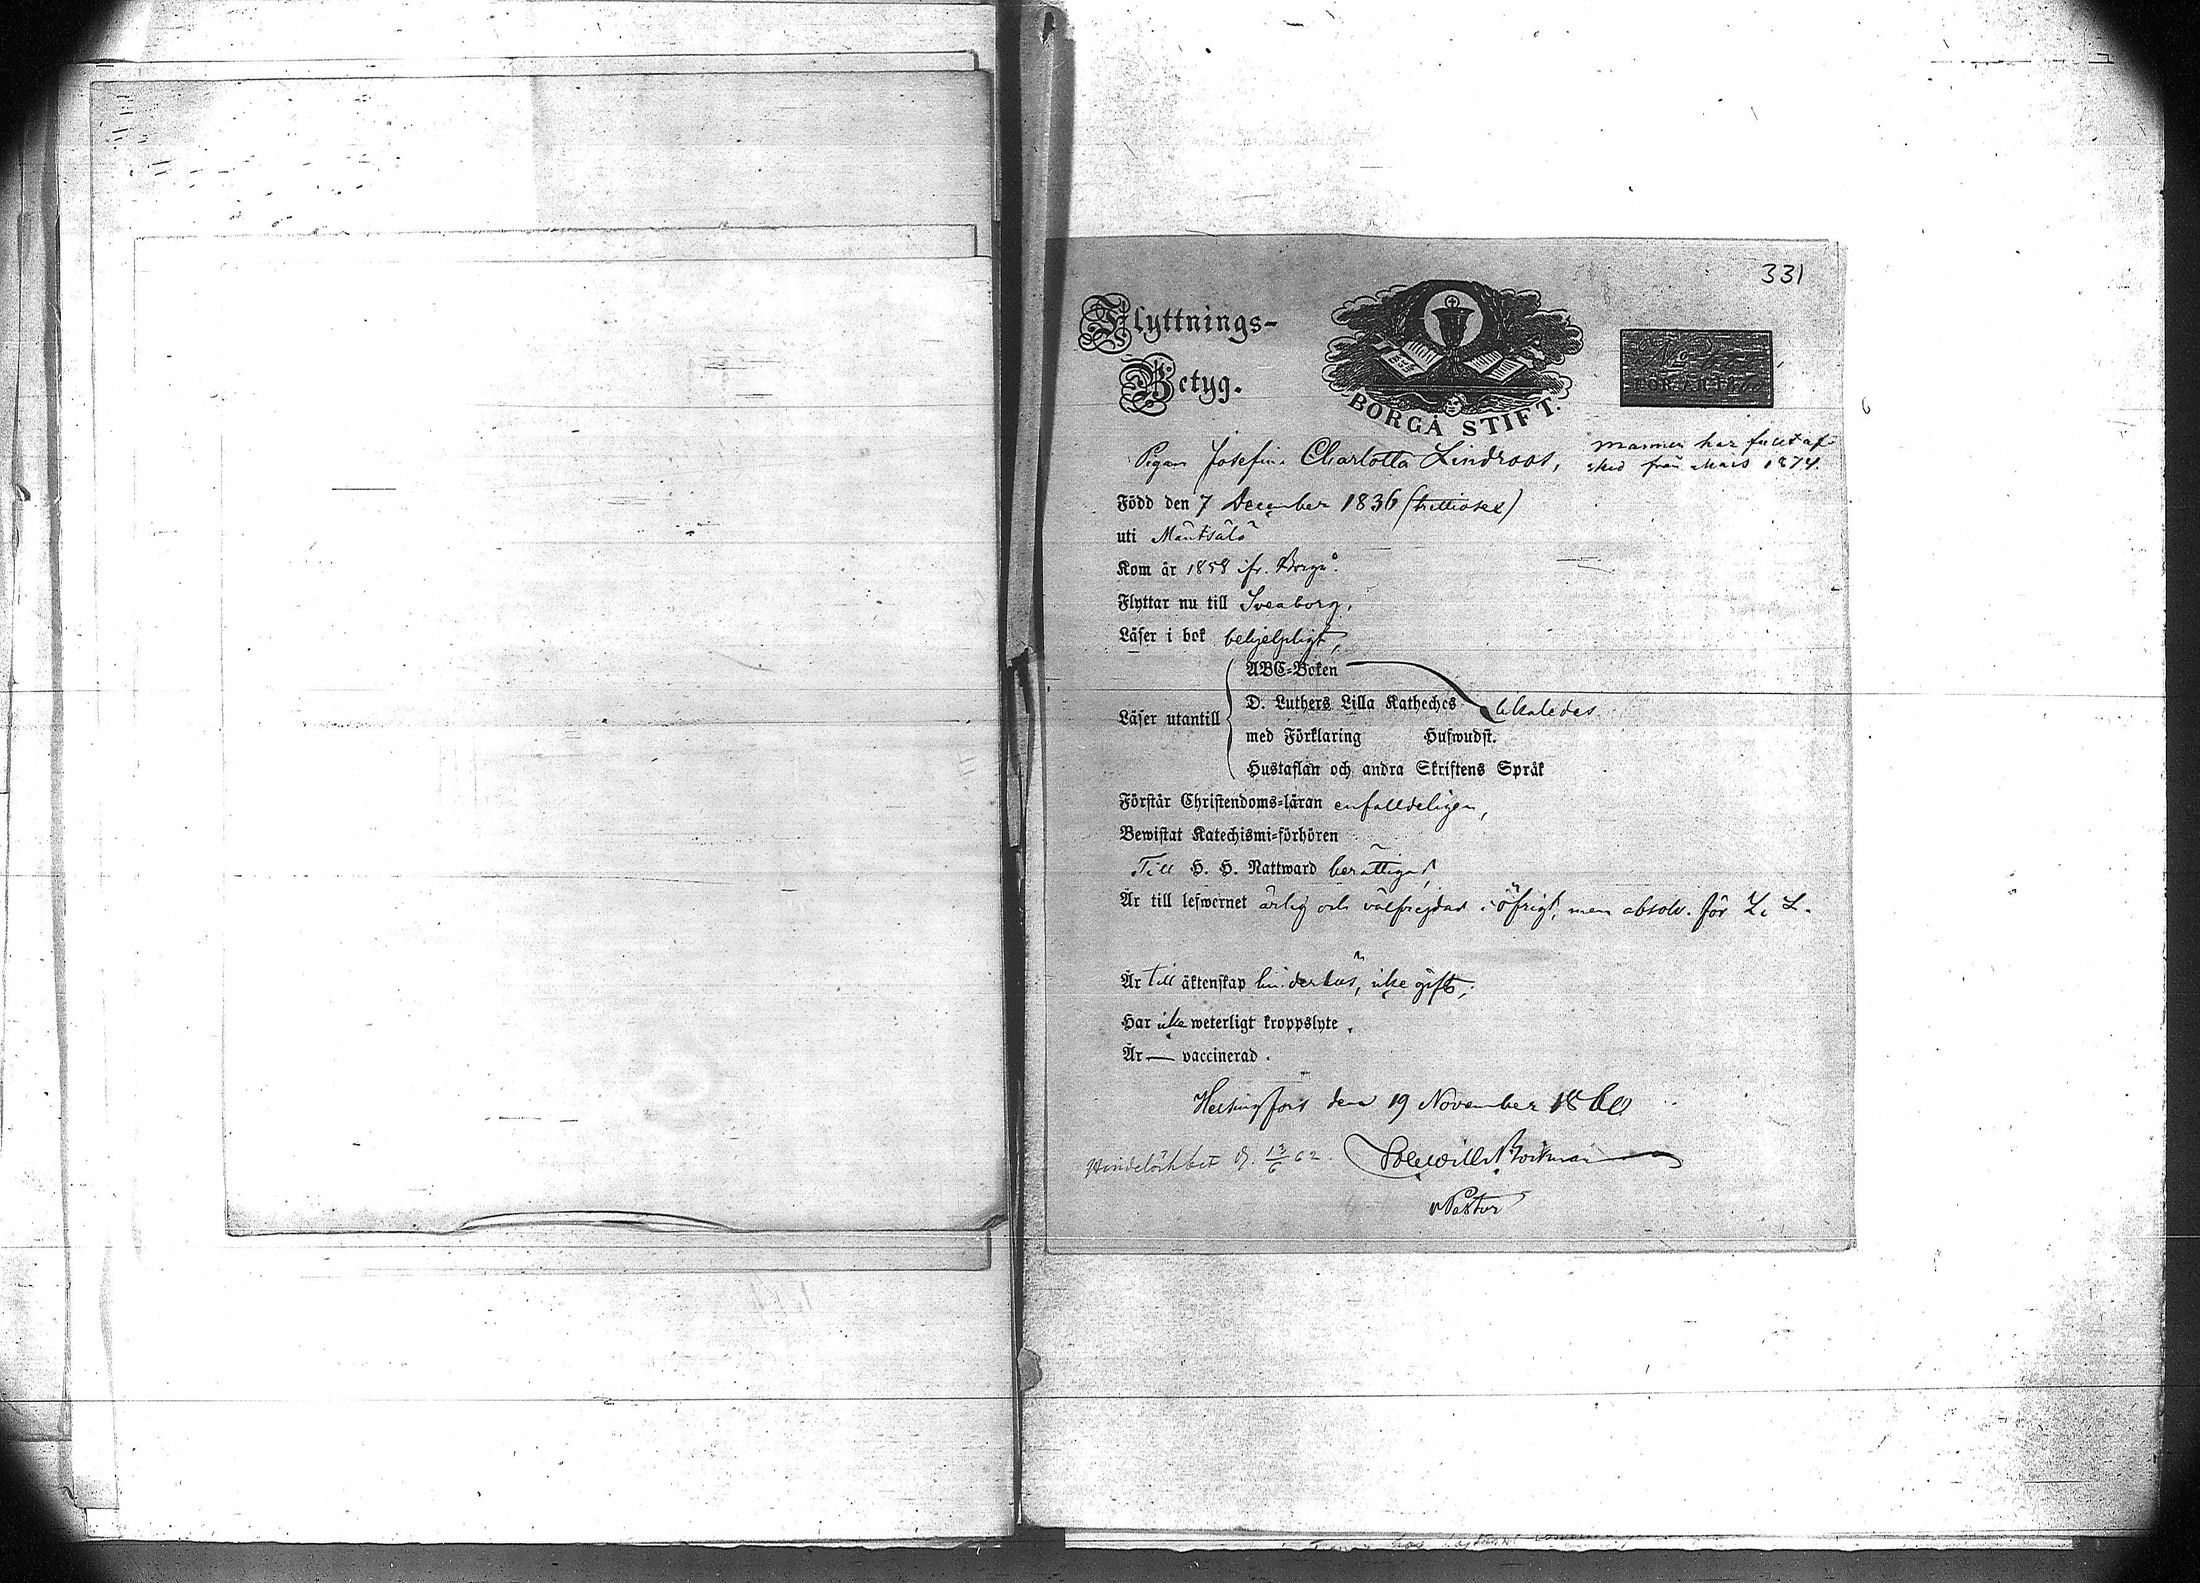 331
Flyttnings-
Betyg.
BORGÅ STIFT.
No
FÖR ÅR 18
Pigan Josefina Charlotta Lindroos,
mannen har fått af-
sked från Mars 1874
Född den 7 December 1836 (trettiosex)
uti Mäntsälä
Kom år 1858 ifr. Borgå.
Flyttar nu till Sveaborg,
Läser i bok behjelpligt,
ABC-Boken
D. Luthers Lilla Katheches likaledes
Läser utantill
med Förklaring Hufwudst.
Hustaflan och andra Skriftens Språk
Förstår Christendoms-läran enfaldeligen,
Bewistat Katechismi-förhören
Till H. H. Nattward berättigad,
Är till lefwernet ärlig och välfrejdad i öfrigt, men absolv. för L. L.
Är till äktenskap hinderlös, icke gift,
Har icke weterligt kroppslyte,
Är — vaccinerad.
Helsingfors den 19 November 1860
d. 13/6 62.
v Pastor